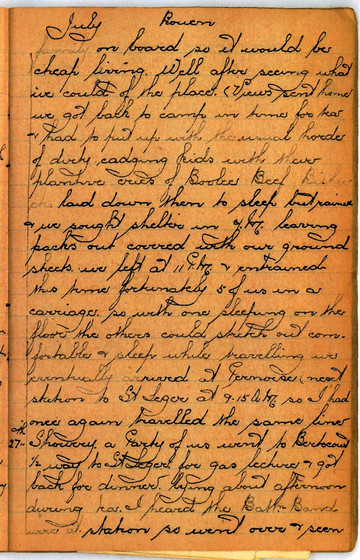 July Rouen
family on board so it would be
cheap living. Well after seeing what
we could of the place. (Views sent home
we got back to camp in time for tea
& had to put up with the usual horde
of dirty cadging kids with their
plaintive cries of Boolee Beef Biskee
laid down then to sleep but rained
& we sought shelter in Y.M. leaving
packs out covered with our ground
sheets. we left at 11 P.M. & entrained
this time fortunately 5 of us in a
carriage, so with one sleeping on the
floor the others could stretch out com-
fortable & sleep while travelling we
eventually arrived at (next
station to St Leger at 9.15 A.M. so I had
once again travelled the same line
27th Showery a Party of us went to Berteaucourt
½ way to St Leger for gas lecture & got
back for dinner lying about afternoon
during tea. I heard the Battn Band
were at station so went over & seen